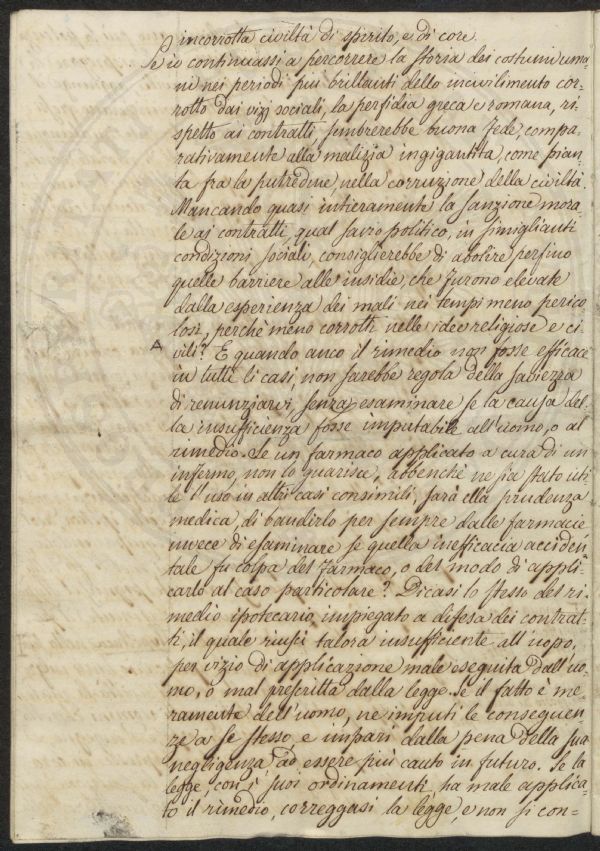 incorrotta civiltà di spirito, e di core.
Se io continuassi a percorrere la storia dei costumi uma=
ni nei periodi più brillanti dello incivilimento cor=
rotto dai vizj sociali, la perfidia greca e romana, ri=
spetto ai contratti, sembrerebbe buona fede, compa=
rativamente alla malizia ingigantita, come pian=
ta fra la putredine, nella corruzione della civiltà.
Mancando quasi intieramente la sanzione mora=
le ai contratti, qual savio politico, in simiglianti
condizioni sociali, consiglierebbe di abolire perfino
quelle barriere alle insidie, che furono elevate
dalla esperienza dei mali nei tempi meno perico
losi, perchè meno corrotti nelle idee religiose e ci
A vili? E quando anco il rimedio non fosse efficace
in tutti li casi, non sarebbe regola della saviezza
di renunziarvi, senza esaminare se la causa del=
la insufficienza fosse imputabile all'uomo, o al
rimedio. Se un farmaco applicato a cura di un
infermo, non lo guarisce, abbenchè ne sia stato uti
le l'uso in altri casi consimili, sarà ella prudenza
medica, di bandirlo per sempre dalle farmacie
invece di esaminare se quella inefficacia acciden=
tale fu colpa del farmaco, o del modo di appli=
carlo al caso particolare? Dicasi lo stesso del ri=
medio ipotecario impiegato a difesa dei contrat=
ti, il quale riuscì talora insufficiente all'uopo,
per vizio di applicazione male eseguita dall'uo=
mo, o mal prescritta dalla legge. Se il fatto è me=
ramente dell'uomo, ne imputi le conseguen=
ze a se stesso e impari dalla pena della sua
negligenza, ad essere più cauto in futuro. Se la
legge, con i suoi ordinamenti, ha male applica=
to il rimedio, correggasi la legge, e non si con=